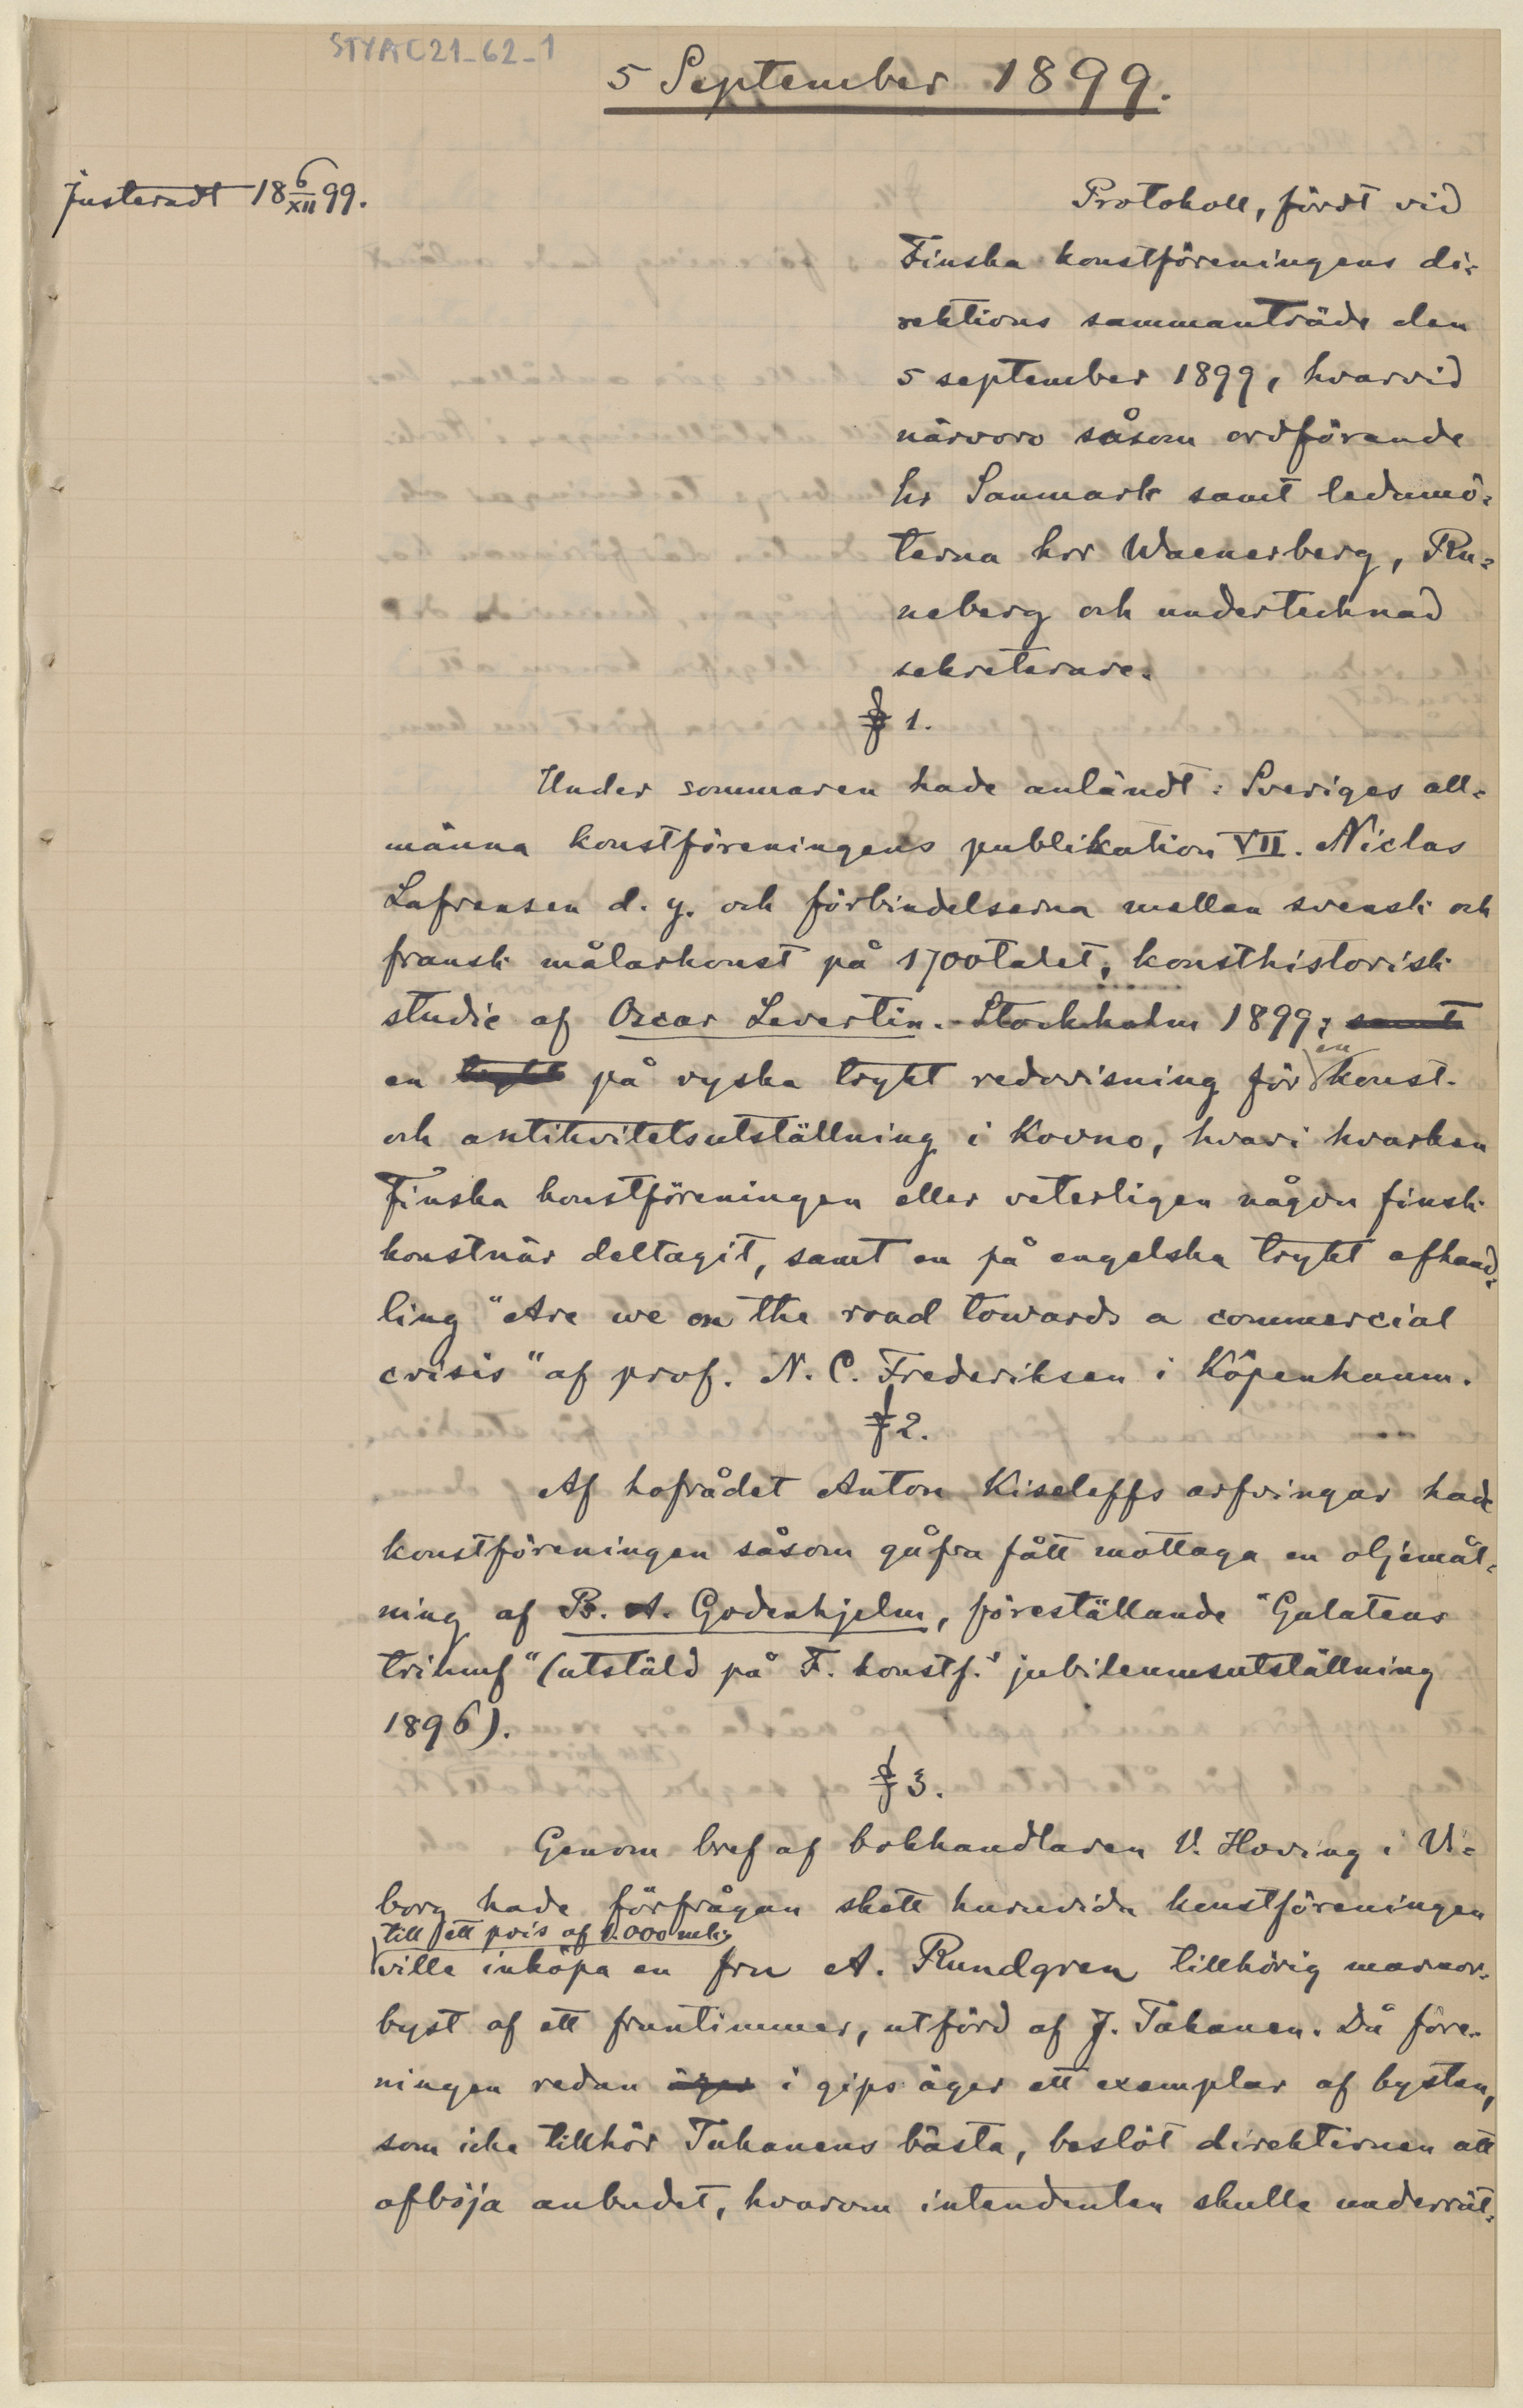 STYAC21_62_1
5 September 1899.
Justeradt 18 6/XII 99.
Protokoll, fördt vid
Finska konstföreningens di-
rektions sammanträde den
5 september 1899, hvarvid
närvoro såsom ordförande
hr Sanmark samt ledamö-
terna hrr Waenerberg, Ru-
neberg och undertecknad
sekreterare.
§ 1.
Under sommaren hade anländt: Sveriges all-
männa konstförenings publikation VII. Niclas
Lafrensen d. y. och förbindelserna mellan svensk och
fransk målarkonst på 1700talet, konsthistorisk
studie af Oscar Levertin. Stockholm 1899; samt
en trykt på ryska trykt redovisning för en konst-
och antikvitetsutställning i Kovno, hvari hvarken
Finska konstföreningen eller veterligen någon finsk
konstnär deltagit, samt en på engelska trykt afhand-
ling "Are we on the road towards a commercial
crisis" af prof. N. C. Frederiksen i Köpenhamn.
§ 2.
Af hofrådet Anton Kiseleffs arfvingar hade
konstföreningen såsom gåfva fått mottaga en oljemål-
ning af B. A. Godenhjelm, föreställande "Galateas
triumf" (utstäld på F. konstf.s jubileumsutställning
1896).
§ 3.
Genom bref af bokhandlaren V. Hoving i Vi-
borg hade förfrågan skett huruvida konstföreningen
till ett pris af 1.000 mk
ville inköpa en fru A. Rundgren tillhörig marmor-
byst af ett fruntimmer, utförd af J. Takanen. Då före-
ningen redan äger i gips äger ett exemplar af bysten,
som icke tillhör Takanens bästa, beslöt direktionen att
afböja anbudet, hvarom intendenten skulle underrät-